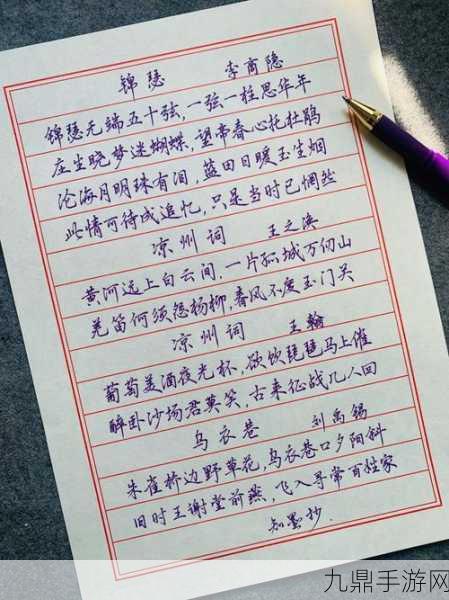 锦瑟 李商隐
锦瑟无端五十弦,一弦一柱思华年
庄生晓梦迷蝴蝶,望帝春心托杜鹃
沧海月明珠有泪,蓝田日暖玉生烟
此情可待成追忆,只是当时已惘然
凉州词 王之涣
黄河远上白云间,一片孤城万仞山
羌笛何须怨杨柳,春风不度玉门关
凉州词 王翰
葡萄美酒夜光杯,欲饮琵琶马上催
醉卧沙场君莫笑,古来征战几人回
乌衣巷 刘禹锡
朱雀桥边野草花,乌衣巷口夕阳斜
旧时王谢堂前燕,飞入寻常百姓家
知墨抄.
九鼎手游网